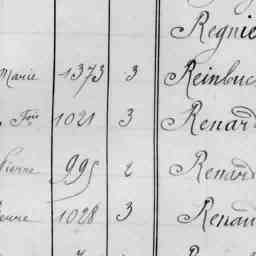 Regnie
Marie 1373 3 Reinbuc
Fois 1021 3 Renard
Pierre 995 2 Renard
1028 3 Renau